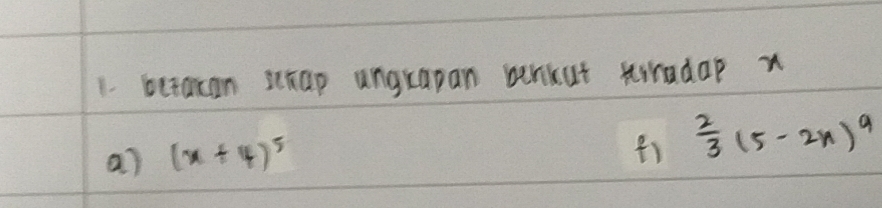 1. bezakan setiap ungkapan berikut terhadap x
a) (x + 4)⁵ f) 2/3 (5 - 2x)⁹